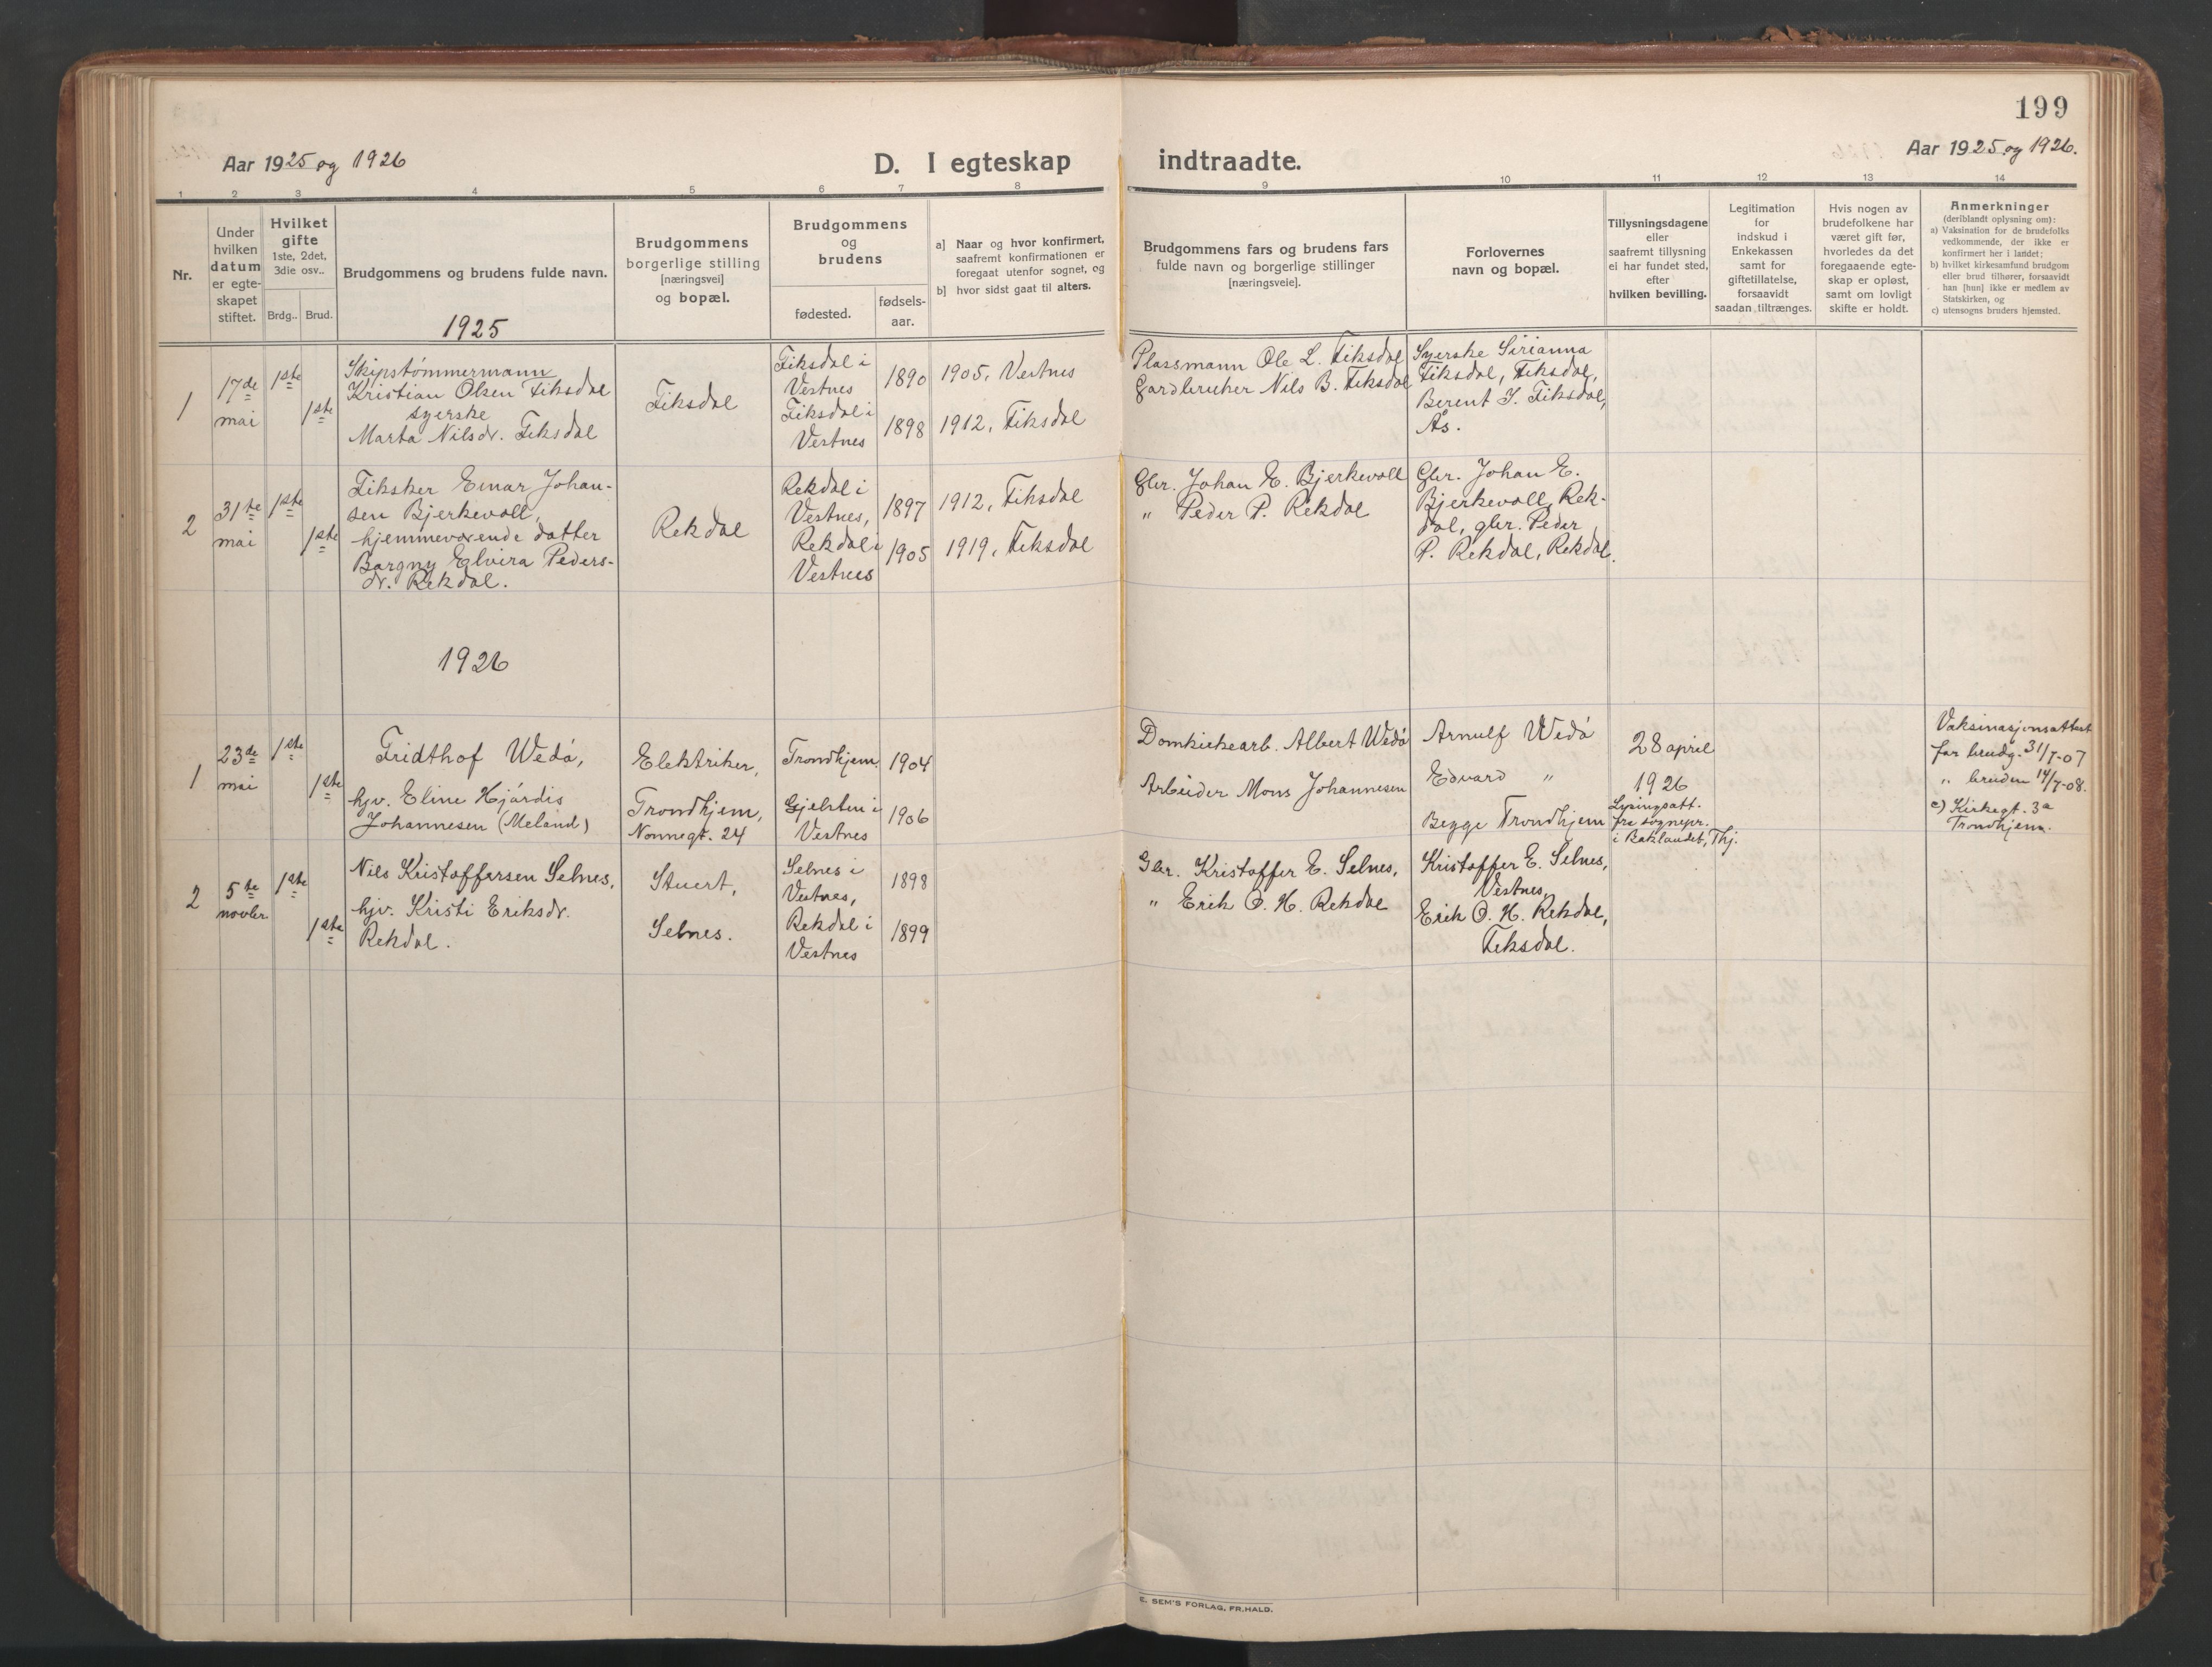 199
Aar 1925 og 1926
D. I egteskap indtraadte.
Aar 1925 og 1926.
1 2 3 4 5 6 7 8 9 10 11 12 13 14
Nr.
Under
hvilken
datum
er egte-
skapet
stiftet.
Hvilket
gifte
1ste, 2det,
3die osv..
Brdg.. Brud.
Brudgommens og brudens fulde navn.
Brudgommens
borgerlige stilling
[næringsvei]
og bopæl.
Brudgommens
og
brudens
fødested.
fødsels-
aar.
a] Naar og hvor konfirmert,
saafremt konfirmationen er
foregaat utenfor sognet, og
b] hvor sidst gaat til alters.
Brudgommens fars og brudens fars
fulde navn og borgerlige stillinger
[næringsveie].
Forlovernes
navn og bopæl.
Tillysningsdagene
eller
saafremt tillysning
ei har fundet sted,
efter
hvilken bevilling.
Legitimation
for
indskud i
Enkekassen
samt for
giftetillatelse,
forsaavidt
saadan tiltrænges.
Hvis nogen av
brudefolkene har
været gift før,
hvorledes da det
foregaaende egte-
skap er opløst,
samt om lovligt
skifte er holdt.
Anmerkninger
(deriblandt oplysning om):
a) Vaksination for de brudefolks
vedkommende, der ikke er
konfirmert her i landet;
b) hvilket kirkesamfund brudgom
eller brud tilhører, forsaavidt
han [hun] ikke er medlem av
Statskirken, og
c) utensogns bruders hjemsted.
1925
1
17de
mai
1ste
1ste
Skipstømmermann
Kristian Olsen Fiksdal
syerske
Marta Nilsdr. Fiksdal
Fiksdal
Fiksdal i
Vestnes
Fiksdal i
Vestnes
1890
1898
1905, Vestnes
1912, Fiksdal
Plassmann Ole L. Fiksdal
Gardbruker Nils B. Fiksdal
Syerske Sirianna
Fiksdal, Fiksdal,
Berent I. Fiksdal,
Ås.
2
31te
mai
1ste
1ste
Fiksker Einar Johan-
sen Bjerkevoll,
hjemmeværende datter
Borgny Elvira Peders-
dr. Rekdal.
Rekdal
Rekdal i
Vestnes,
Rekdal i
Vestnes
1897
1905
1912, Fiksdal
1919, Fiksdal
Gbr. Johan E. Bjerkevoll
" Peder P. Rekdal
Gbr. Johan E.
Bjerkevoll, Rek-
dal, gbr. Peder
P. Rekdal, Rekdal.
1926
1
23de
mai
1ste
1ste
Fridthof Wedø,
hjv. Eline Hjørdis
Johannesen (Meland)
Elektriker,
Trondhjem,
Nonnegt. 24
Trondhjem
Gjelsten i
Vestnes
1904
1906
Domkirkearb. Albert Wedø
Arbeider Mons Johannesen
Arnulf Wedø
Edvard "
Begge Trondhjem
28 april
1926
Lysingsatt.
fra sognepr.
i Baklandet, Thj.
Vaksinasjonsattest
for brudg. 31/7-07
" bruden 14/7-08.
c) Kirkegt. 3a
Trondhjem.
2
5te
novbr
1ste
1ste
Nils Kristoffersen Selnes,
hjv. Kristi Eriksdr.
Rekdal.
Stuert,
Selnes.
Selnes i
Vestnes,
Rekdal i
Vestnes
1898
1899
Gbr. Kristoffer E. Selnes,
" Erik O. H. Rekdal
Kristoffer E. Selnes,
Vestnes,
Erik O. H. Rekdal,
Fiksdal.
E. SEM'S FORLAG, FR.HALD.